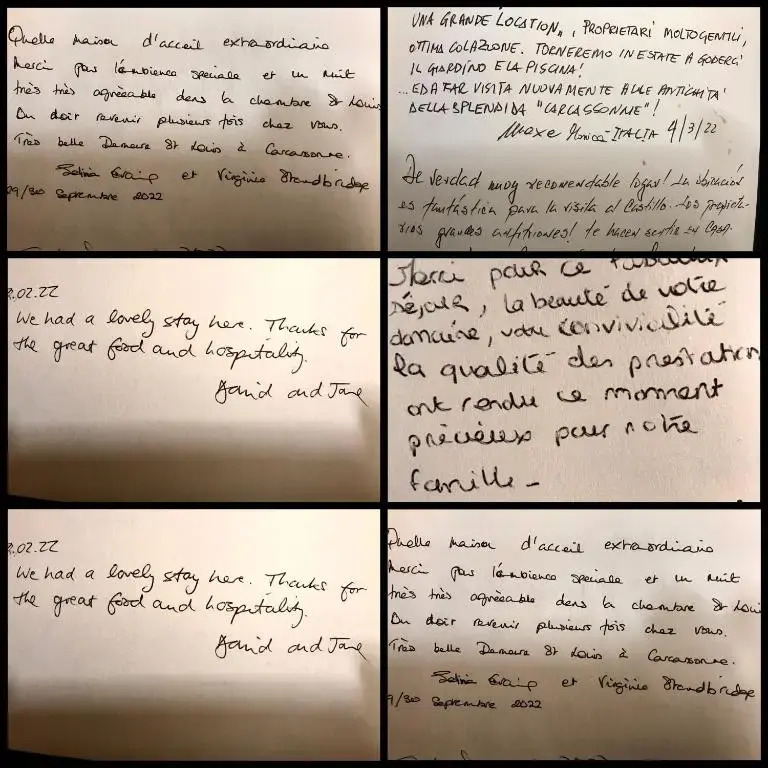 Quelle maison d'acceil extraordinaire
Merci pour l'ambience speciale et un nuit
très très agréeable dans la chambre St Louis
On doit revenir plusieurs fois chez vous.
Très belle Demeure St Louis à Carcassonne.
et Virginia Standbridge
29/30 Septembre 2022
UNA GRANDE LOCATION, PROPRIETARI MOLTO GENTILI,
OTTIMA COLAZIONE. TORNEREMO IN ESTATE A GODERCI
IL GIARDINO E LA PISCINA!
...ED A FAR VISITA NUOVAMENTE ALLE ANTICHITA'
DELLA SPLENDIDA "CARCASSONNE"!
Monica - ITALIA 4/3/22
De verdad muy recomendable lugar! La ubicación
es fantástica para la visita al Castillo. Los propieta-
rios grandes anfitriones! te hacen sentir en casa.
2.02.22
We had a lovely stay here. Thanks for
the great food and hospitality.
David and Jane
Merci pour ce
séjour, la beauté de votre
domaine, votre convivialité
la qualité des prestation
ont rendu ce moment
précieux pour notre
famille -
2.02.22
We had a lovely stay here. Thanks for
the great food and hospitality.
David and Jane
Quelle maison d'acceil extraordinaire
Merci pour l'ambience speciale et un nuit
très très agréeable dans la chambre St Loui
On doit revenir plusieurs fois chez vous.
Très belle Demeure St Louis à Carcassonne.
et Virginia Standbridge
9/30 Septembre 2022